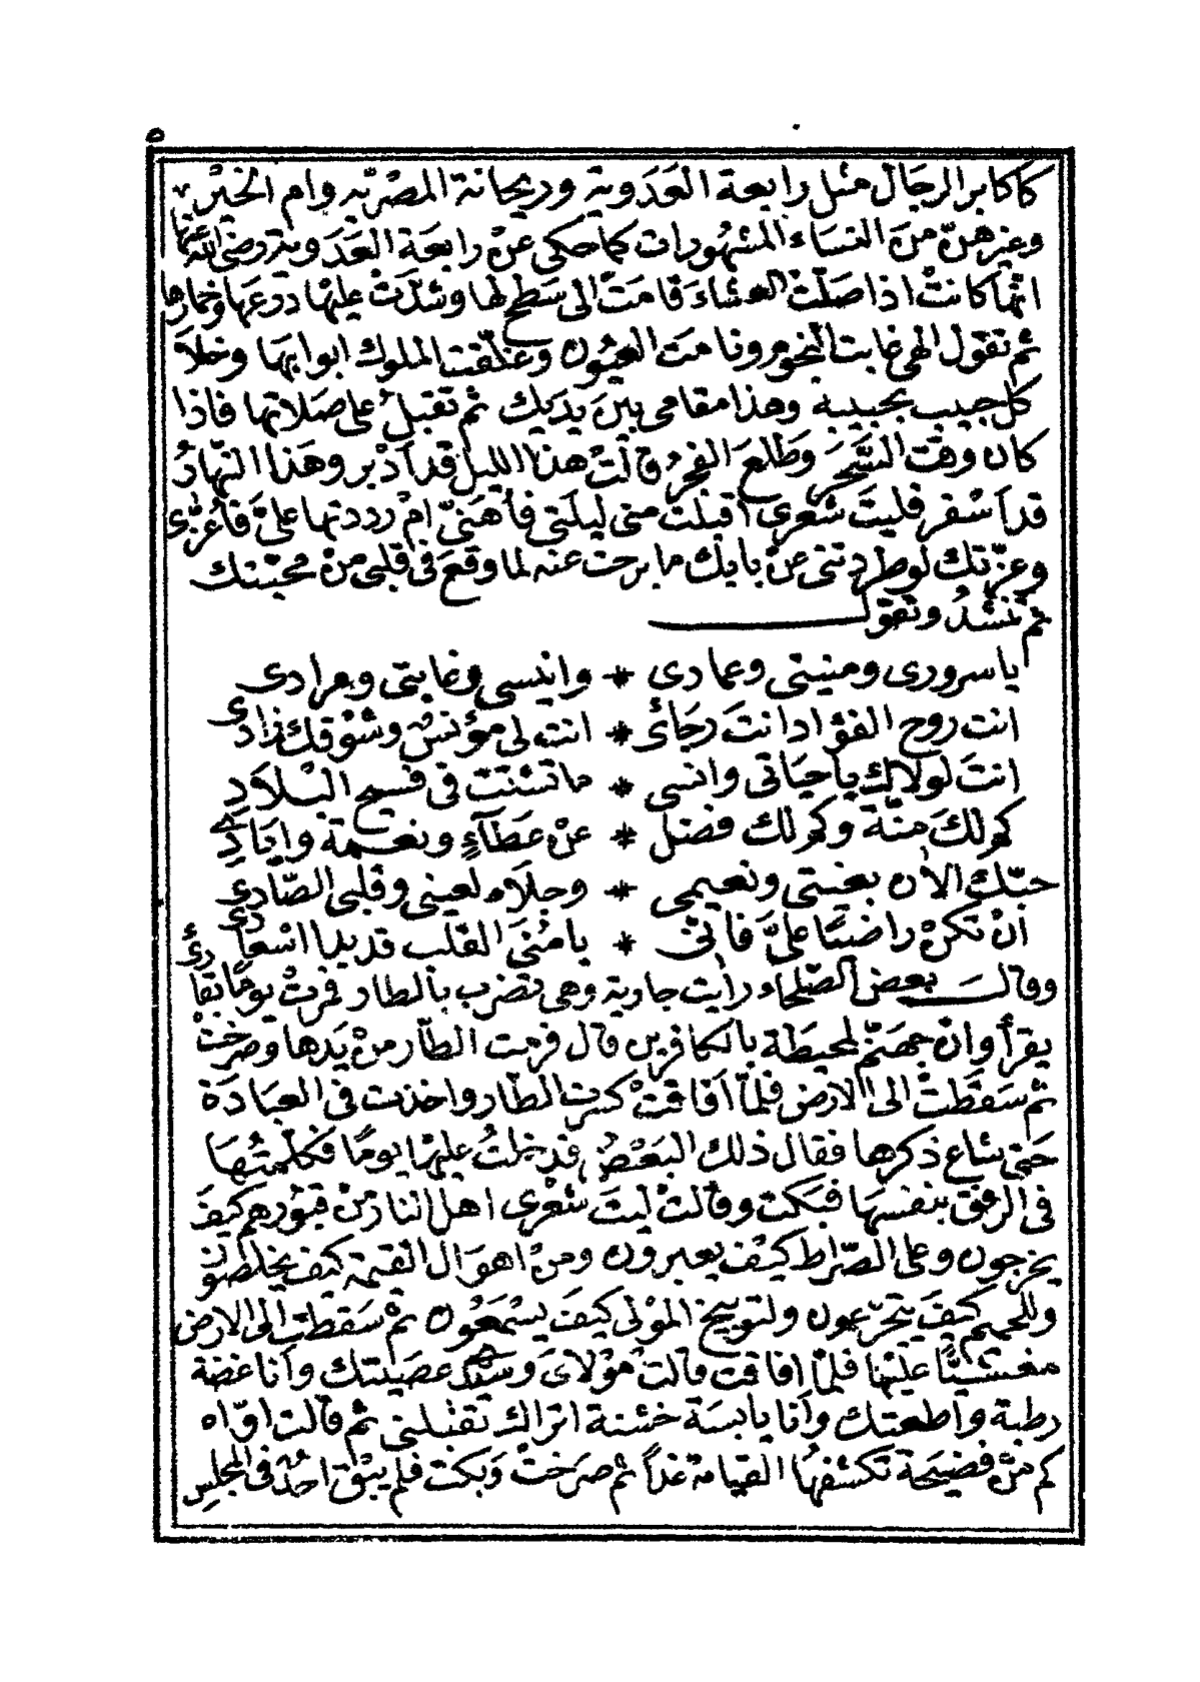 ٥
كاكابر الرجال مثل رابعة العَدَوية وريحانة المصْريّه وام الخيْر
وغيرهنّ منَ النساء المشهُورات كما حكى عنْ رابعَة العَدَوية رضى الله عنها
انها كانتْ اذا صلّت العشاءَ قامَتْ الى سَطح لها وشدّتْ عليْها درعها وخمارها
ثم تقول الهى غابت النجوم ونامَت العيُون وغلّقت الملوك ابوابها وخلاَ
كل حبيب بحبيبه وهذا مقامى بينَ يدَيك ثم تقبلُ على صَلاتها فاذا
كان وقت السَّحَر وَطلعَ الفجرُ قالتْ هذا الليل قد اَدْبر وهَذا النّهارُ
قد اَسْفر فليتَ شعْرى أقبلت منى ليلَتى فأهَنىّ امْ رددتها علىَّ فأعزّى
وعزّتك لوطردتنى عنْ بابك ما برحت عنه لما وقعَ فى قلبى منْ محبّتك
ثم تنشدُ وتقول
ياسرورى ومنيتى وعمادى * وانيسى وغايتى ومرادى
انت روح الفؤاد انتَ رجَائى * انت لى مؤنسٌ وشوْقك زادى
انتَ لولاك ياحيَاتى وانسى * ماتشتّت فى فسيح البْلاَدِ
كم لكَ منّة وكم لك فضل * عنْ عَطَآءٍ ونعمة واياَدِى
حبّك الاٰن بغيتى ونعيمى * وجلاء لعينى وقلبى الصّادى
انْ تكنْ راضيًا علىَّ فانىّ * يامُنىَ القلب قد بدا اسْعادى
وقال بعض الصّلحاء رأيت جارية وهى تضرب بالطار فمرتْ يومًا بقارئ
يقرأ وانّ جهنّم لمحيَطة بالكافرين قال فرمت الطّار منْ يَدها وصرخَتْ
ثم سَقَطتْ الى الارض فلمّا اَفاقتْ كسرت الطّار واخذت فى العبَادَة
حَتى شاع ذكرها فقال ذلك البَعْض فدخلتُ عليْها يومًا فكلّمتُهَا
فى الرفق بنفسهَا فبَكت وقالتْ ليتَ شعْرى اهل النار منْ قبوُرهم كيفَ
يخرجون وعلى الصّراط كيْف يعبرون ومنْ اهوَال القيمة كيْف يخلصُون
وللحميم كيفَ يتجرّعون ولتوبيخ الموْلى كيَفَ يسْمَعُون ثمْ سَقطت الى الارض
مغشيًّا عليْها فلمّا افاقت قالتْ موْلاىَ وسيّدى عصَيْتك وأنا غضّة
رطبة وأطعتك وأنا يابسَة خشنة اتراك تقبْلنى ثم قالت اوّاه
كم منْ فضيحَة تكشفهُا القيامة غداً ثم صرَختْ وَبكت فلم يبْق احُدٌ فى المجلس